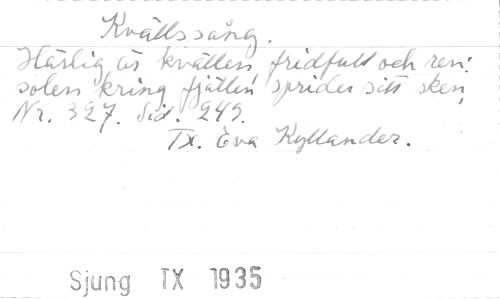 Kvällssång.
Härlig är kvällen, fridfull och ren:
solen kring fjällen sprider sitt sken,
Nr. 327. Sid. 249.
Tx. Eva Kyllander.
Sjung TX 1935